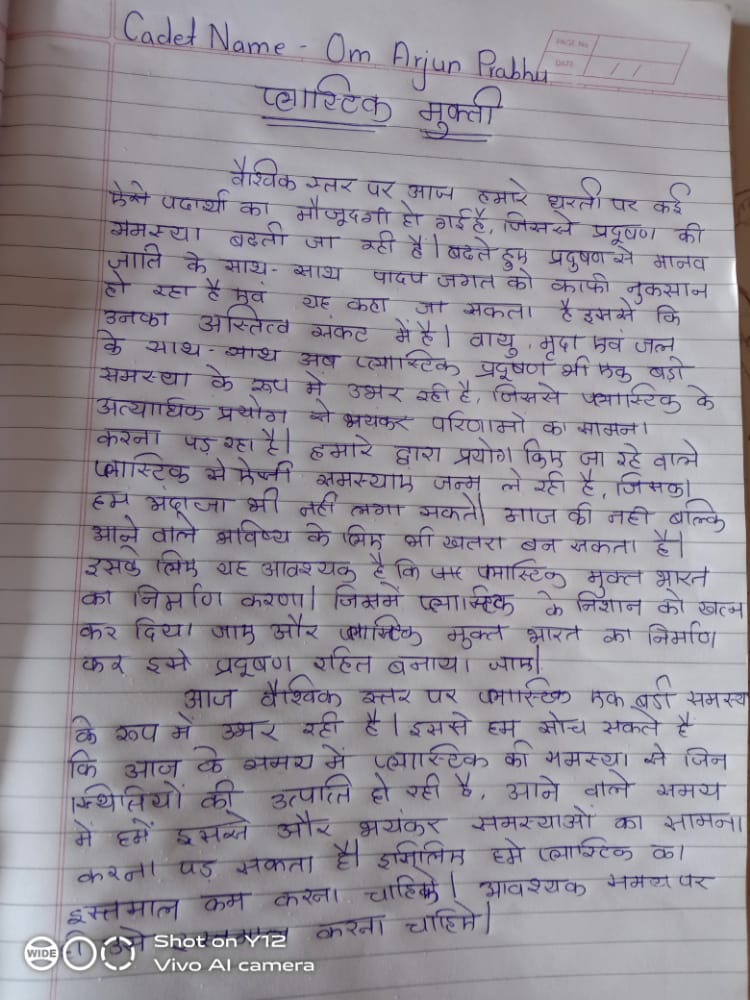 Cadet Name - Om Arjun Prabhu
PAGE No.
DATE / /
प्लास्टिक मुक्ती
वैश्विक स्तर पर आज हमारे धरती पर कई
ऐसे पदार्थो का मौजूदगी हो गई है, जिससे प्रदूषण की
समस्या बढती जा रही है। बढते हुए प्रदुषण से मानव
जाति के साथ-साथ पादप जगत को काफी नुकसान
हो रहा है एवं यह कहा जा सकता है इससे कि
उनका अस्तित्व संकट में है। वायु, मृदा एवं जल
के साथ-साथ अब प्लास्टिक प्रदूषण भी एक बड़ी
समस्या के रूप में उभर रही है, जिससे प्लास्टिक के
अत्याधिक प्रयोग से भयंकर परिणामो का सामना
करना पड़ रहा है। हमारे द्वारा प्रयोग किए जा रहे वाले
प्लास्टिक से ऐसी समस्याए जन्म ले रही है, जिसका
हम अदाजा भी नही लगा सकते। आज की नही बल्कि
आने वाले भविष्य के लिए भी खतरा बन सकता है।
इसके लिए यह आवश्यक है कि प्लास्टिक मुक्त भारत
का निर्माण करणा। जिसमें प्लास्टिक के निशान को खत्म
कर दिया जाए और प्लास्टिक मुक्त भारत का निर्माण
कर इसे प्रदूषण रहित बनाया जाए।
आज वैश्विक स्तर पर प्लास्टिक एक बड़ी समस्य
के रूप में उभर रही है। इससे हम सोच सकते है
कि आज के समय में प्लास्टिक की समस्या से जिन
स्थितियों की उत्पाति हो रही है, आने वाले समय
में हमें इससे और भयंकर समस्याओं का सामना
करना पड़ सकता है। इसिलिए हमे प्लास्टिक का
इस्तमाल कम करना चाहिये। आवश्यक समय पर
करना चाहिमे।
WIDE
Shot on Y12
Vivo AI camera